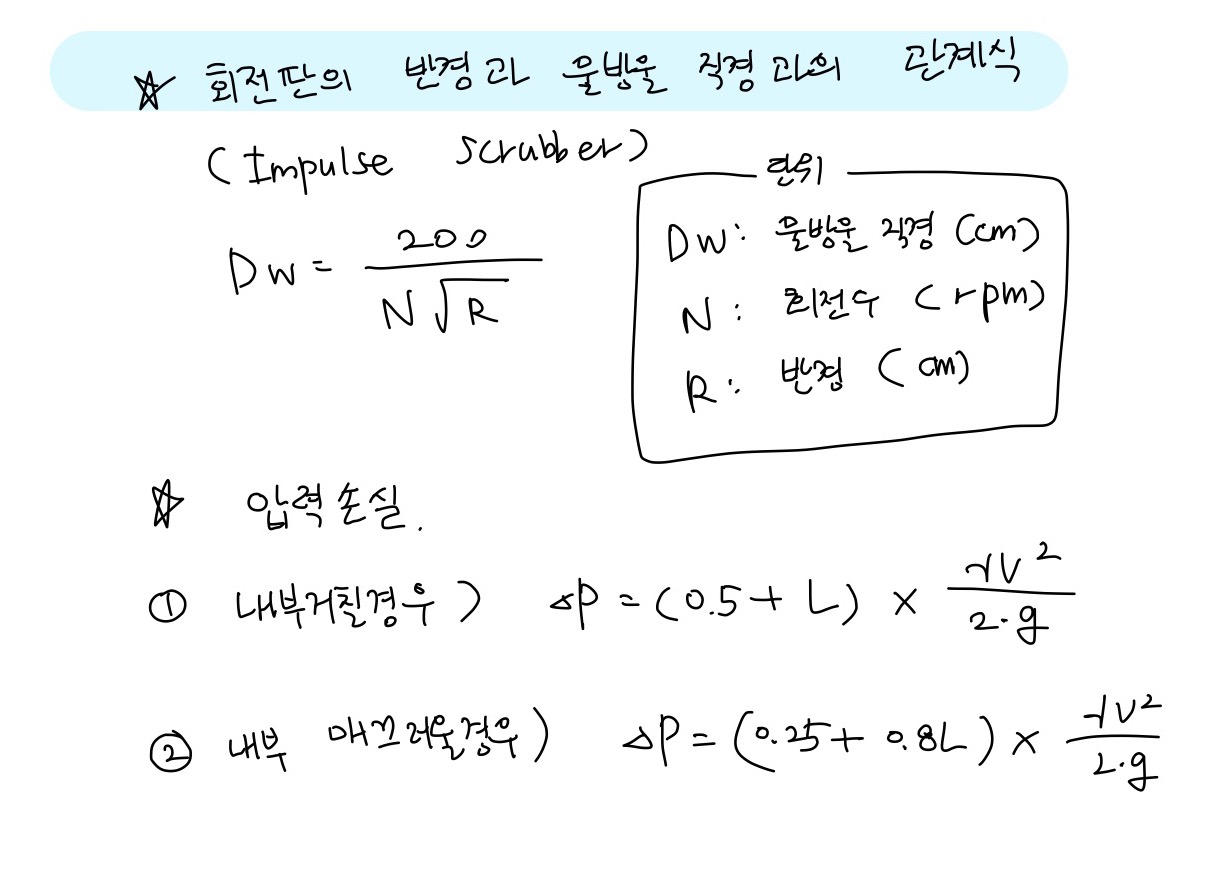 ☆ 회전판의 반경과 물방울 직경과의 관계식
(Impulse Scrubber)
Dw = 200 / N√R
단위
Dw: 물방울 직경 (cm)
N: 회전수 (rpm)
R: 반경 (cm)
☆ 압력손실.
① 내부거칠경우) ΔP = (0.5 + L) × γV² / 2·g
② 내부 매끄러울경우) ΔP = (0.25 + 0.8L) × γV² / 2·g